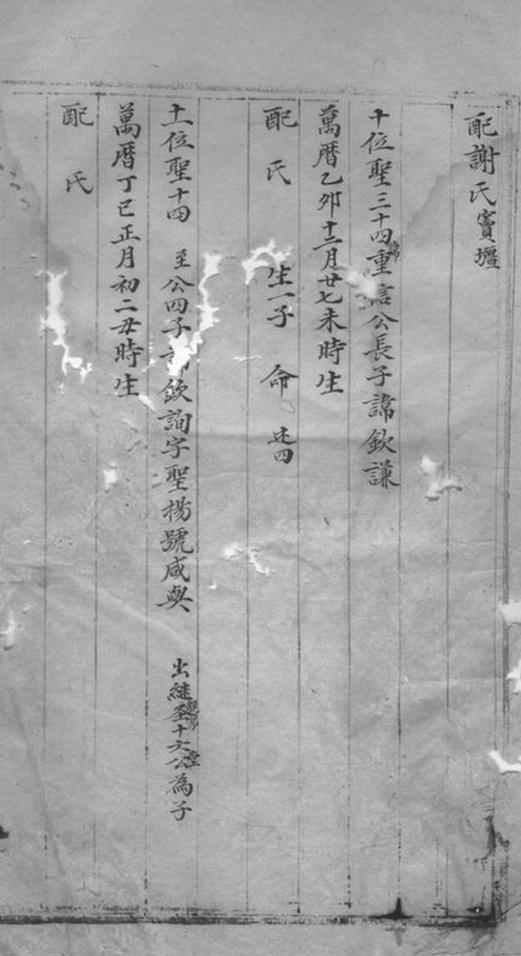 配謝氏竇壇
十位聖三十四重言公長子諱欽謙
萬曆乙卯十二月廿七未時生
配 氏 生一子 命 廷四
十一位聖十四 至公四子諱欽詢字聖楊號咸與 出継至十六公為子
萬曆丁巳正月初二丑時生
配 氏